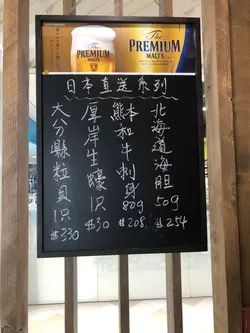 THE PREMIUM MALT'S
THE PREMIUM MALT'S
日本直送系列
北海道海胆 50g $254
熊本和牛刺身 80g $208
厚岸生蠔 1只 $30
大分縣粒貝 1只 $330